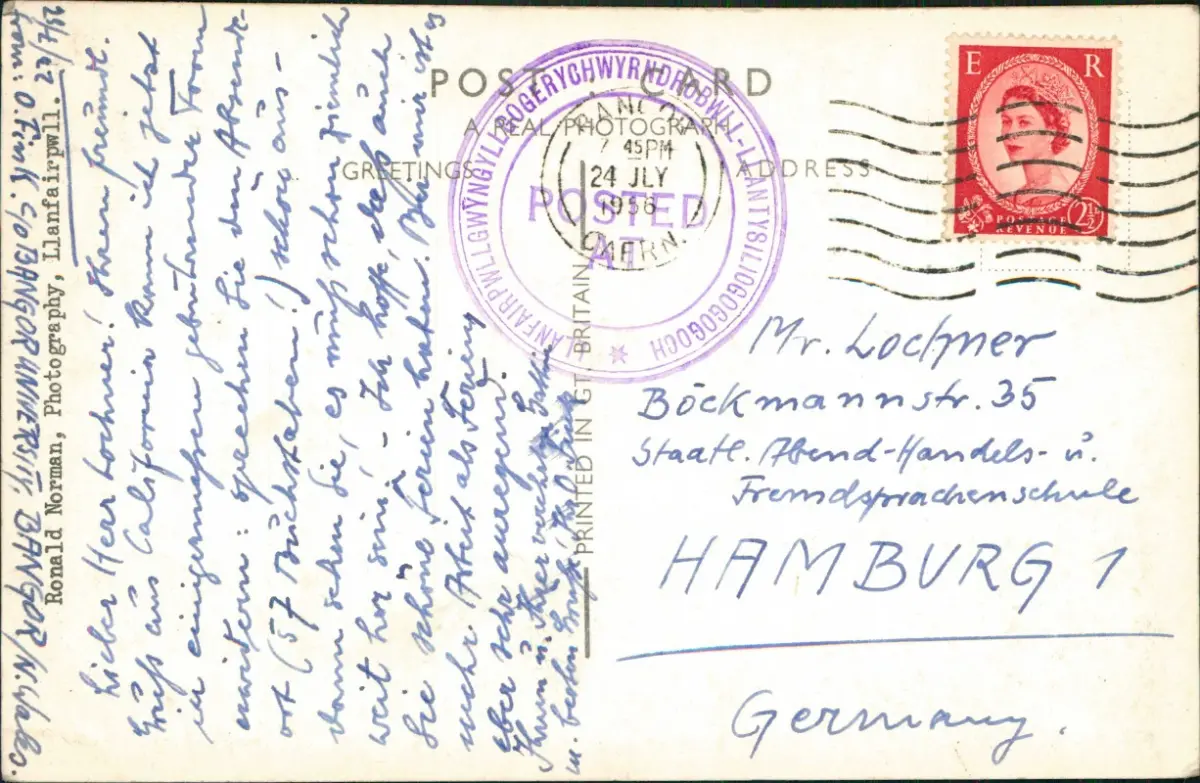 POST CARD
A REAL PHOTOGRAPH
GREETINGS
ADDRESS
LLANFAIRPWLLGWYNGYLLGOGERYCHWYRNDROBWLL-LLANTYSILIOGOGOGOCH
POSTED
AT
45PM
24 JLY
1956
CAERN.
E R
POSTAGE
REVENUE
2½D
PRINTED IN GT. BRITAIN
Ronald Norman, Photography, Llanfairpwll.
from: O. Fink. c/o BANGOR UNIVERSITY, BANGOR/N. Wales.
Lieber Herr Lochner! Ihren freundl.
Gruß aus Californien kann ich jetzt
in einigermaßen gebührender Form
erwidern: sprechen Sie den Absende-
ort (57 Buchstaben!) schön aus -
dann sehen Sie, es muß schon ziemlich
weit her sein! - Ich hoffe, daß auch
Sie schöne Ferien haben. Bei mir ist es
mehr Arbeit als Ferien,
aber sehr anregend.
Ihnen u. Ihrer verehrten Gattin
m. besten Grüßen, Ihr
Mr. Lochner
Böckmannstr. 35
Staatl. Abend-Handels- u.
Fremdsprachenschule
HAMBURG 1
Germany.